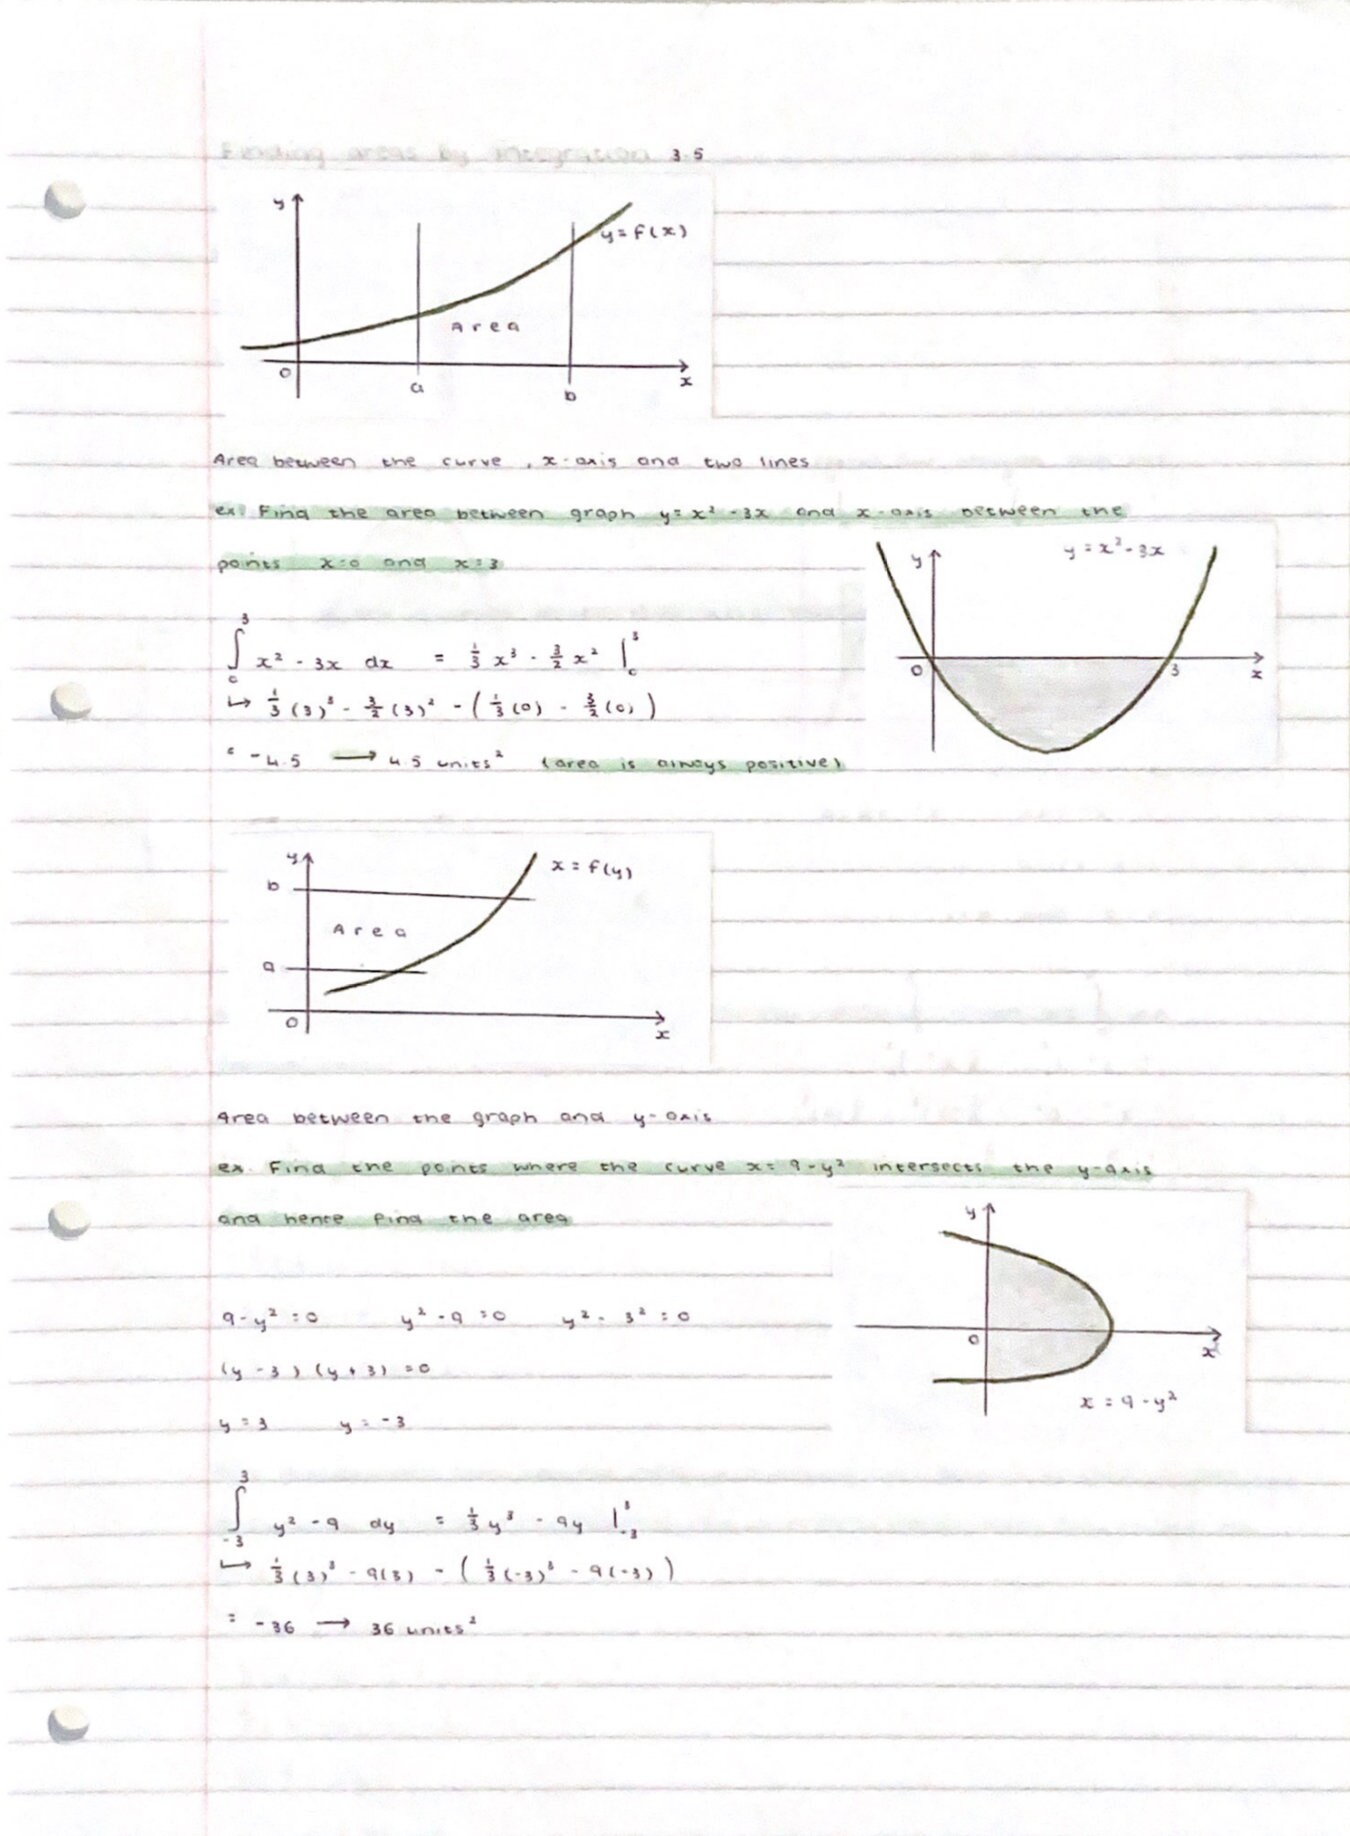 Finding areas by integration 3.5
y
y = f(x)
Area
0
a
b
x
Area between the curve, x-axis and two lines
ex. Find the area between graph y = x² - 3x and x-axis between the
points x=0 and x=3
y
y = x² - 3x
0
3
x
∫₀³ x² - 3x dx = ⅓ x³ - 3/2 x² |₀³
↳ ⅓ (3)³ - 3/2 (3)² - (⅓ (0) - 3/2 (0))
= -4.5 → 4.5 units² (area is always positive)
y
x = f(y)
b
Area
a
0
x
Area between the graph and y-axis
ex. Find the points where the curve x = 9 - y² intersects the y-axis
and hence find the area
y
0
x
x = 9 - y²
9 - y² = 0 y² - 9 = 0 y² - 3² = 0
(y - 3) (y + 3) = 0
y = 3 y = -3
∫₋₃³ y² - 9 dy = ⅓ y³ - 9y |₋₃³
↳ ⅓ (3)³ - 9(3) - (⅓ (-3)³ - 9(-3))
= -36 → 36 units²